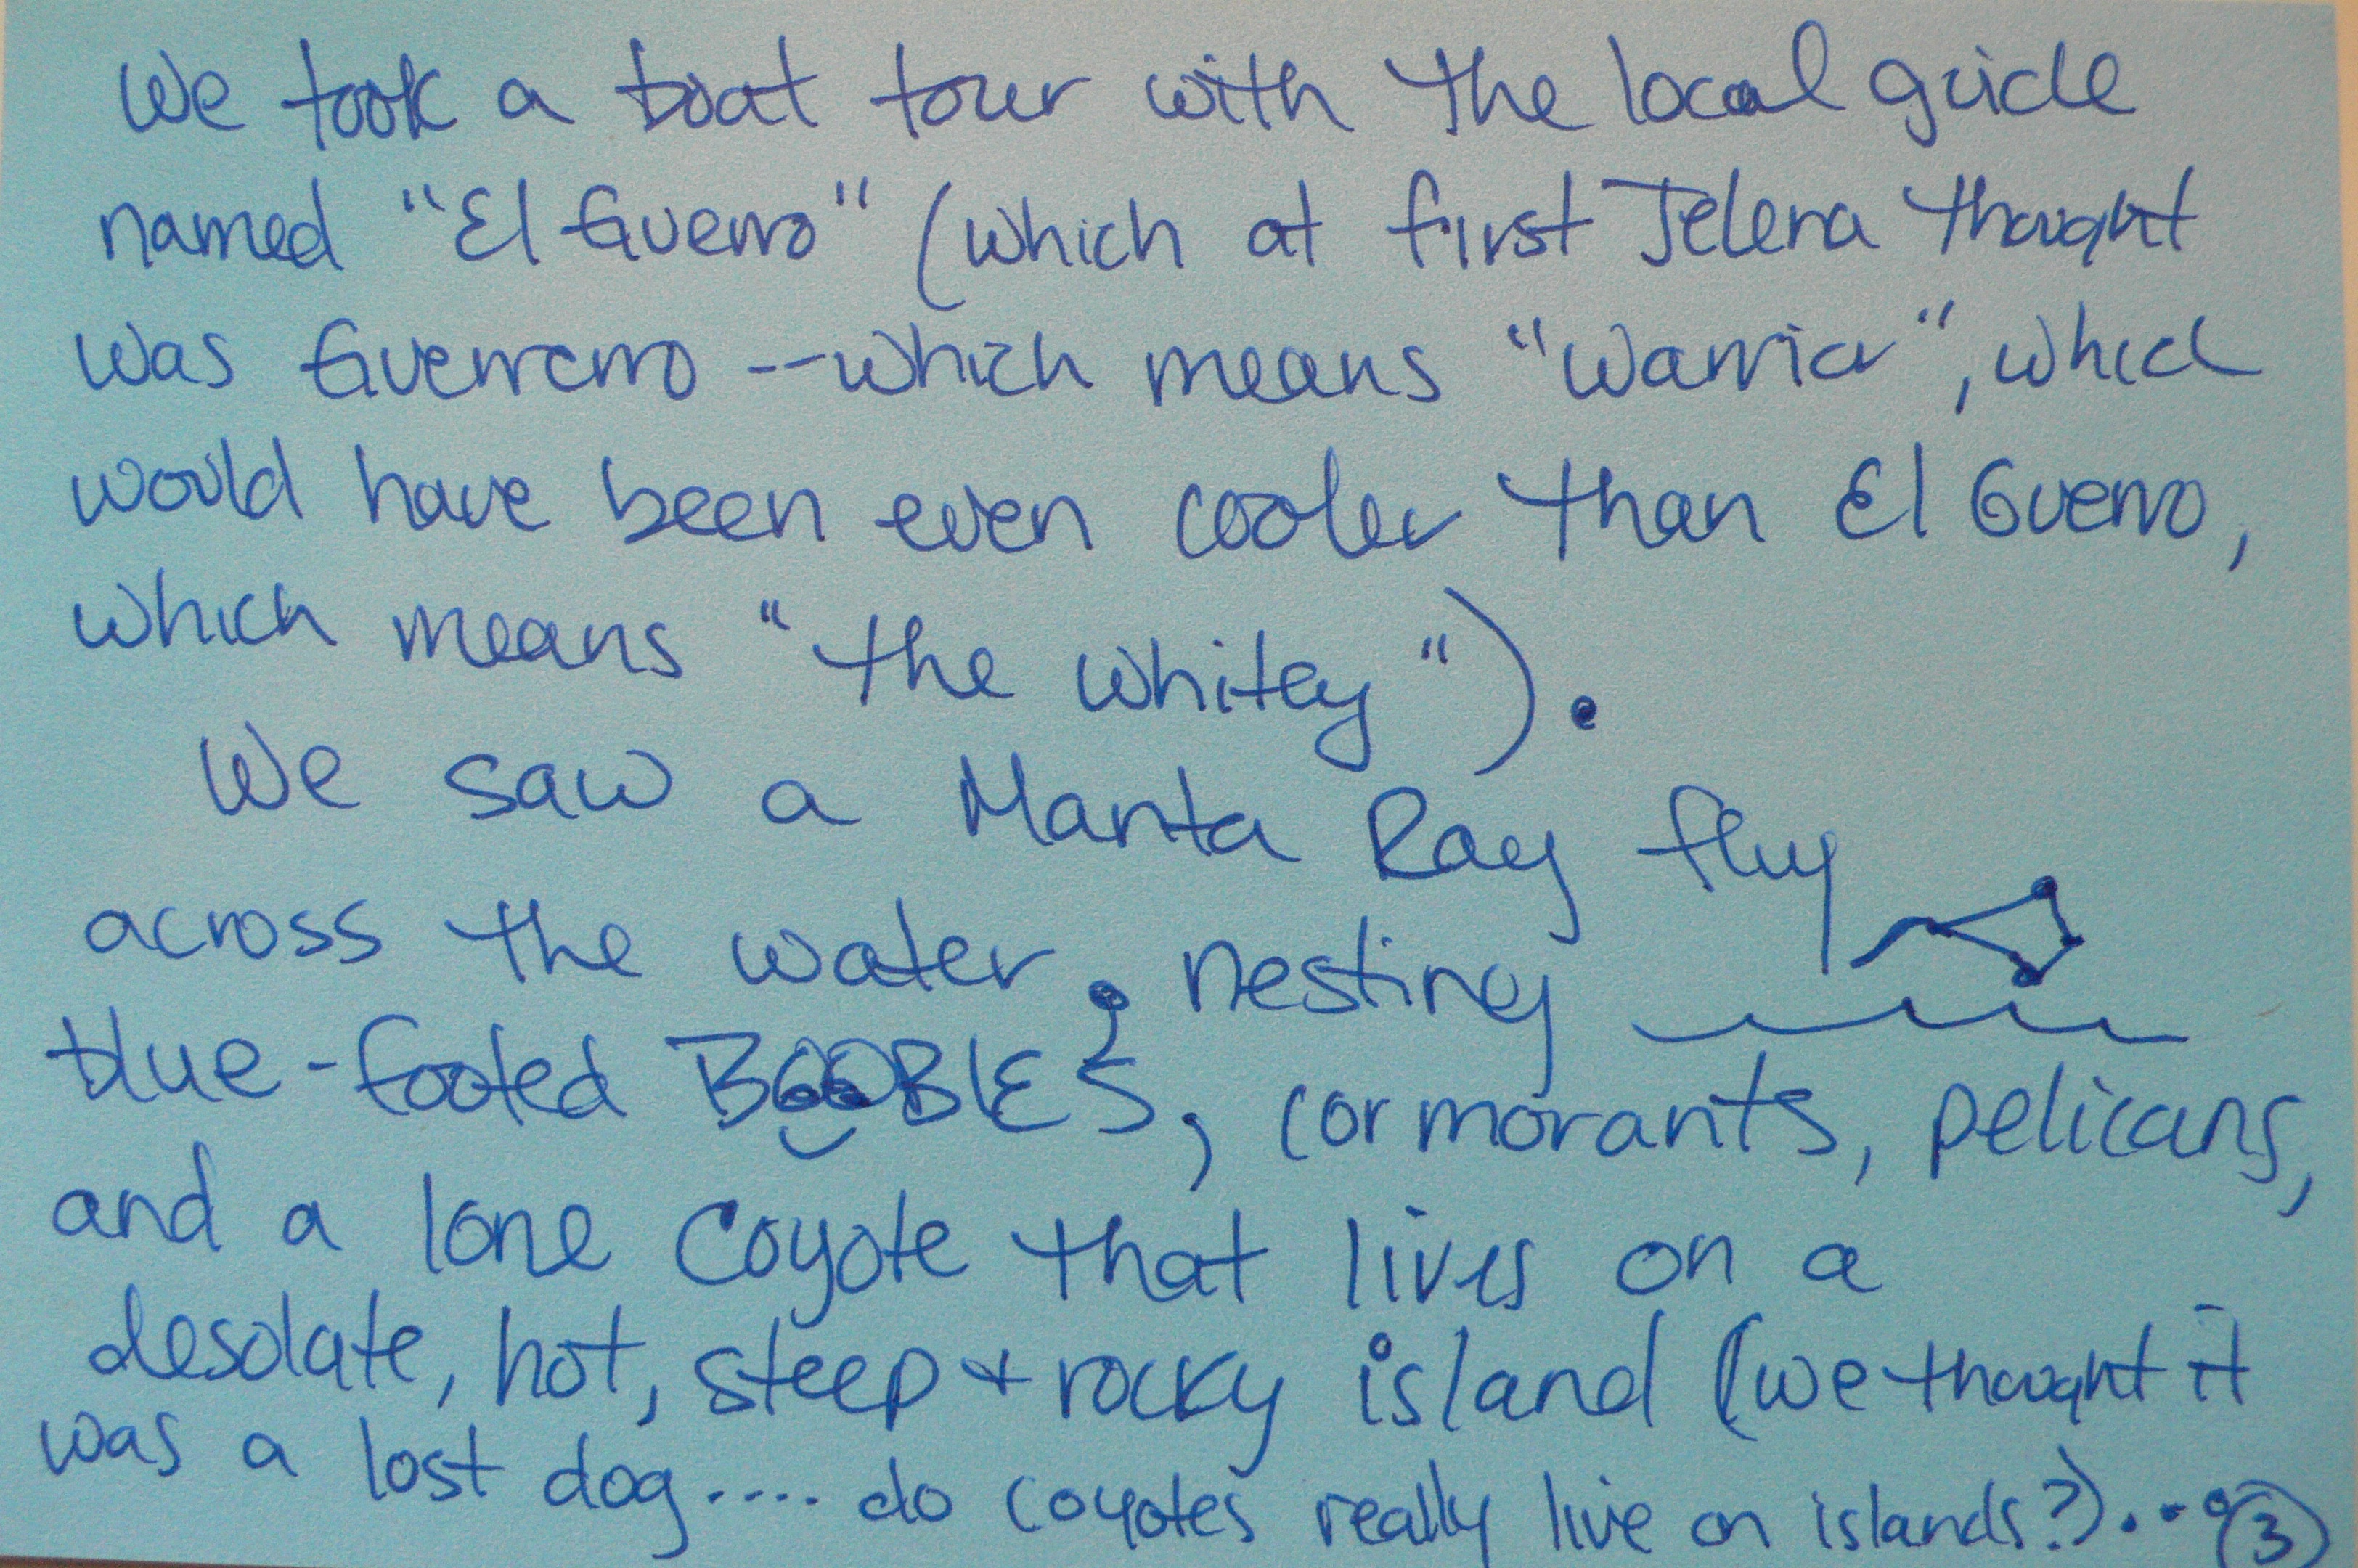 We took a boat tour with the local guide
named "El Guerro" (which at first Jelena thought
was Guerrerro -- which means "Warrior", which
would have been even cooler than El Guerro,
which means "the whitey").
We saw a Manta Ray fly
across the water, nesting
blue-footed BOOBIES, cormorants, pelicans,
and a lone coyote that lives on a
desolate, hot, steep + rocky island (we thought it
was a lost dog.... do coyotes really live on islands?)...
3